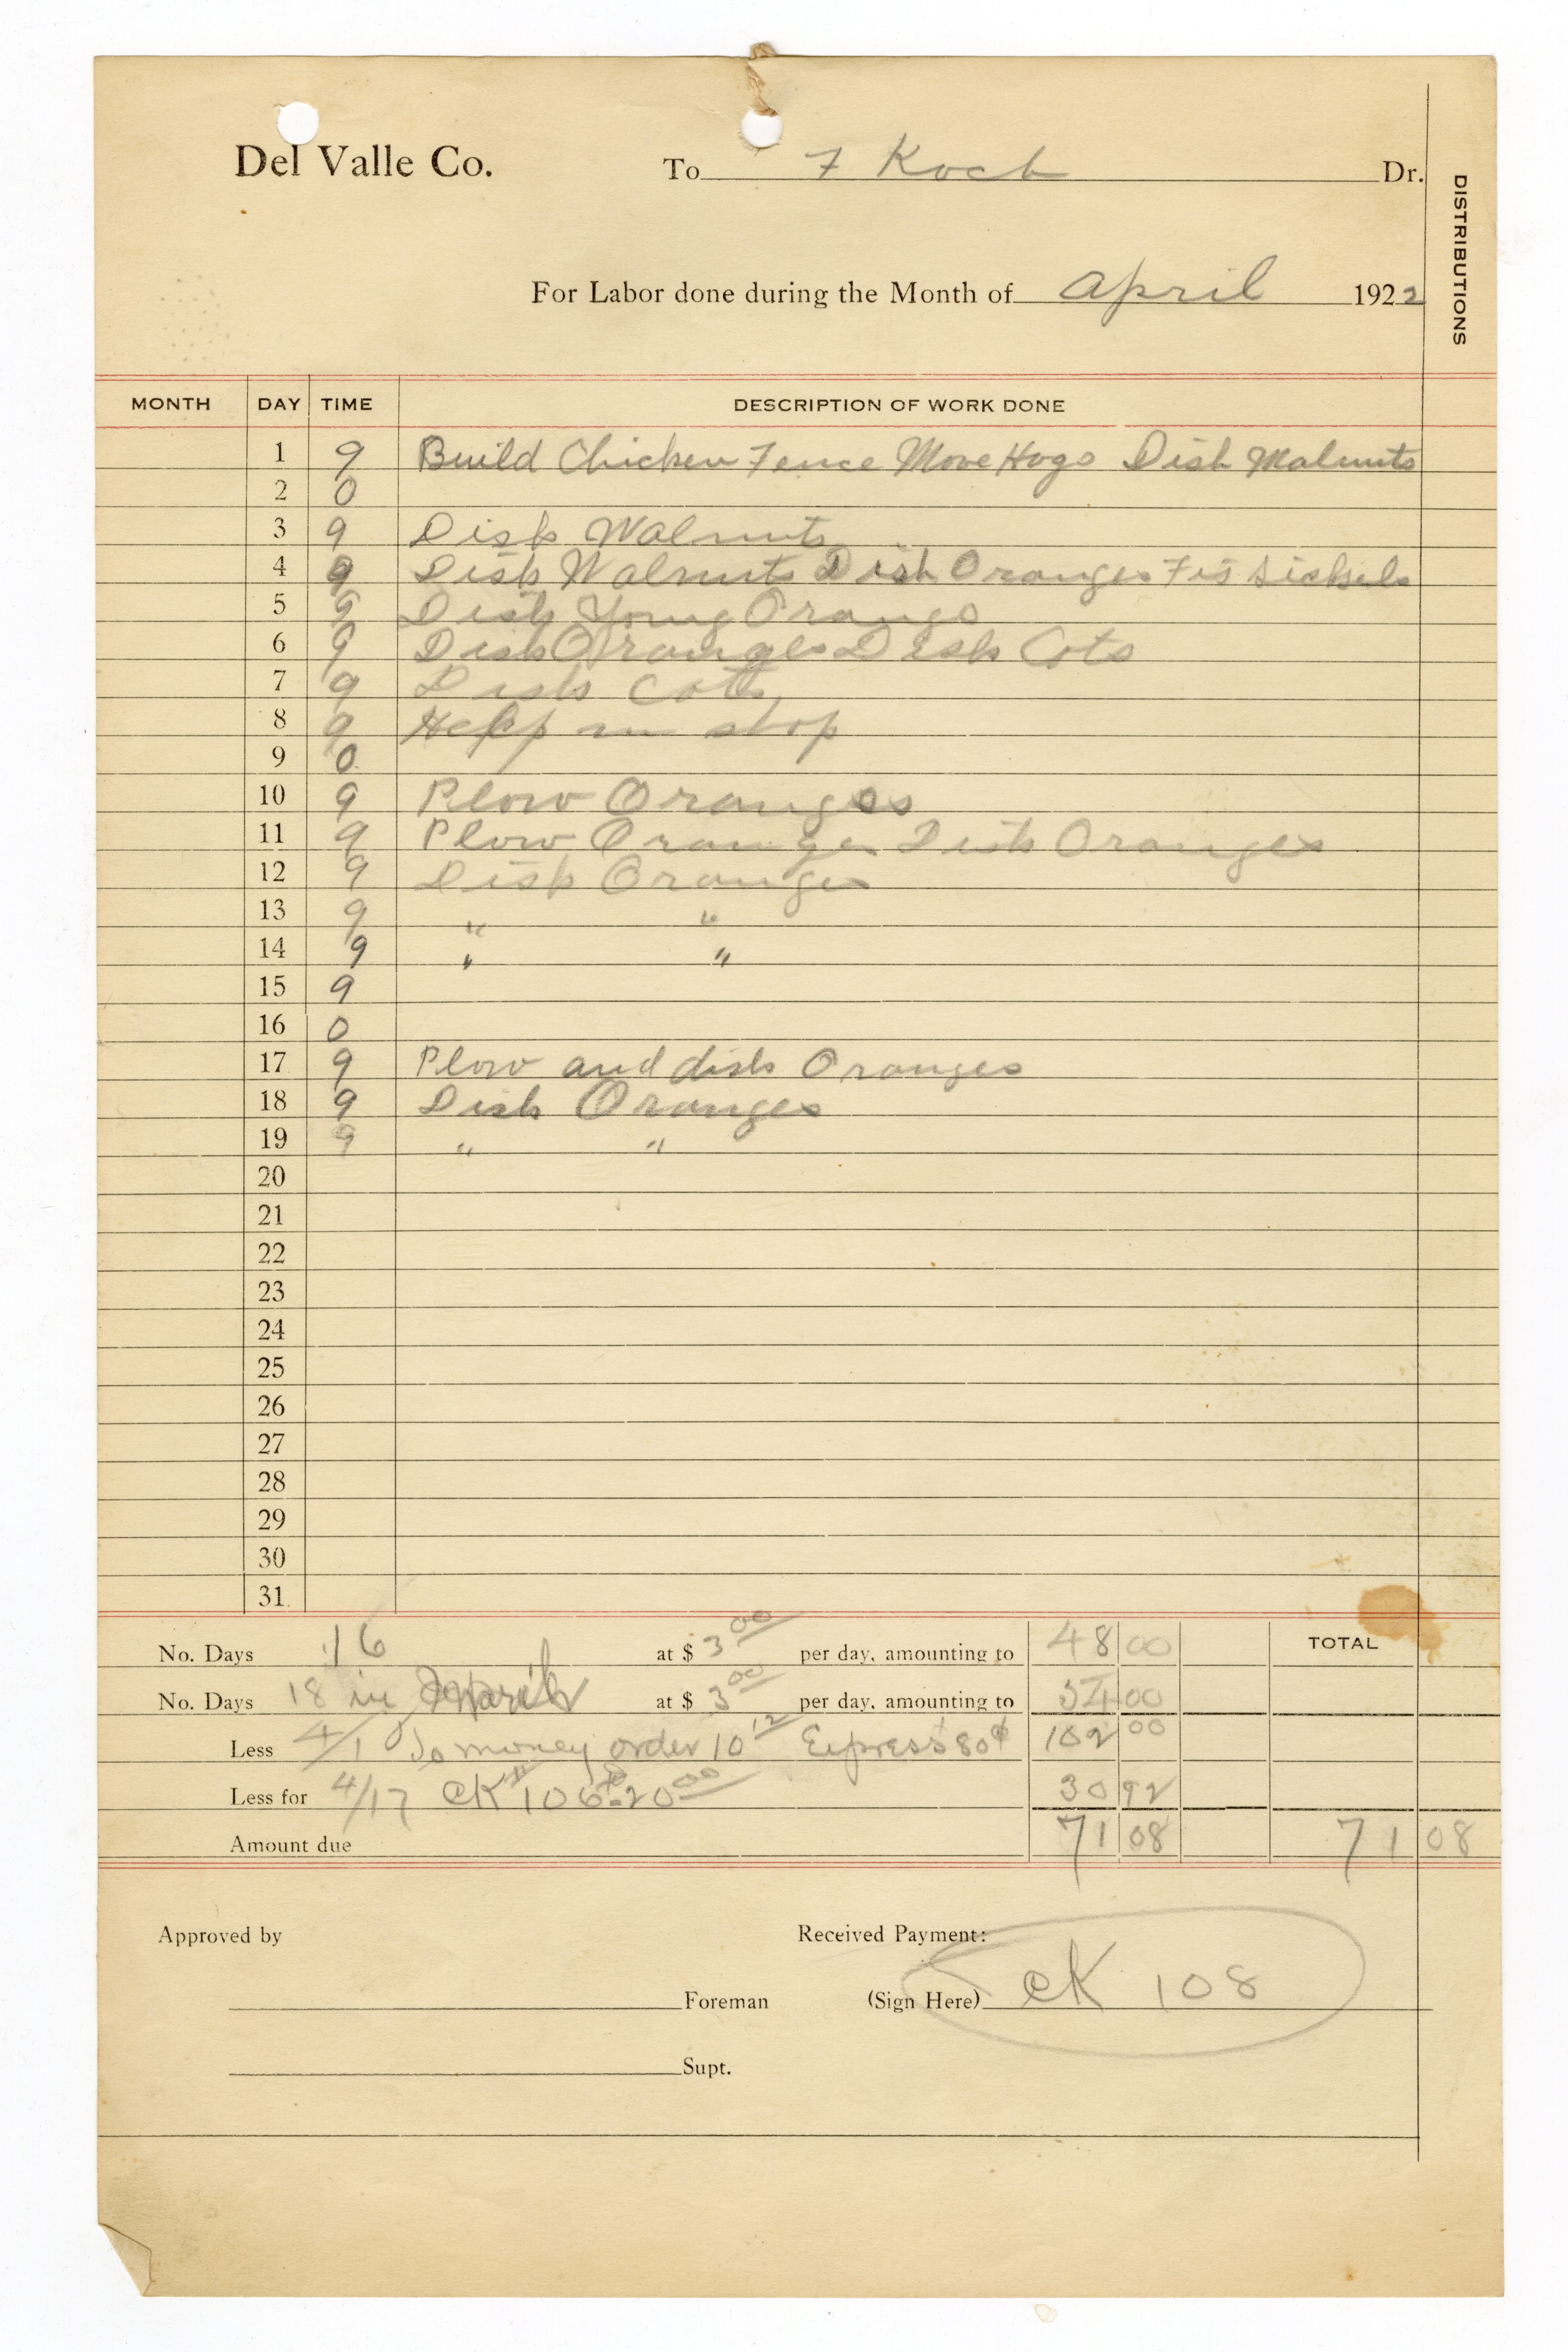 Del Valle Co. To F Koch Dr.
DISTRIBUTIONS
For Labor done during the Month of April 1922
MONTH DAY TIME DESCRIPTION OF WORK DONE
1 9 Build Chicken Fence Move Hogs Disk Walnuts
2 0
3 9 Disk Walnuts
4 9 Disk Walnuts Disk Oranges Fix
5 9 Disk Young Orangs
6 9 Disk Oranges Disk Cots
7 9 Disk Cots
8 9 Help in shop
9 0
10 9 Plow Oranges
11 9 Plow Oranges Disk Oranges
12 9 Disk Oranges
13 9 " "
14 9 " "
15 9
16 0
17 9 Plow and disk Oranges
18 9 Disk Oranges
19 9 " "
20
21
22
23
24
25
26
27
28
29
30
31
No. Days 16 at $ 3 00 per day, amounting to 48 00 TOTAL
No. Days 18 in March at $ 3 00 per day, amounting to 54 00
Less 4/1 To money order 10 12 Express 80¢ 102 00
Less for 4/17 CK 106 20 00 30 92
Amount due 71 08 71 08
Approved by Received Payment:
Foreman (Sign Here) CK 108
Supt.